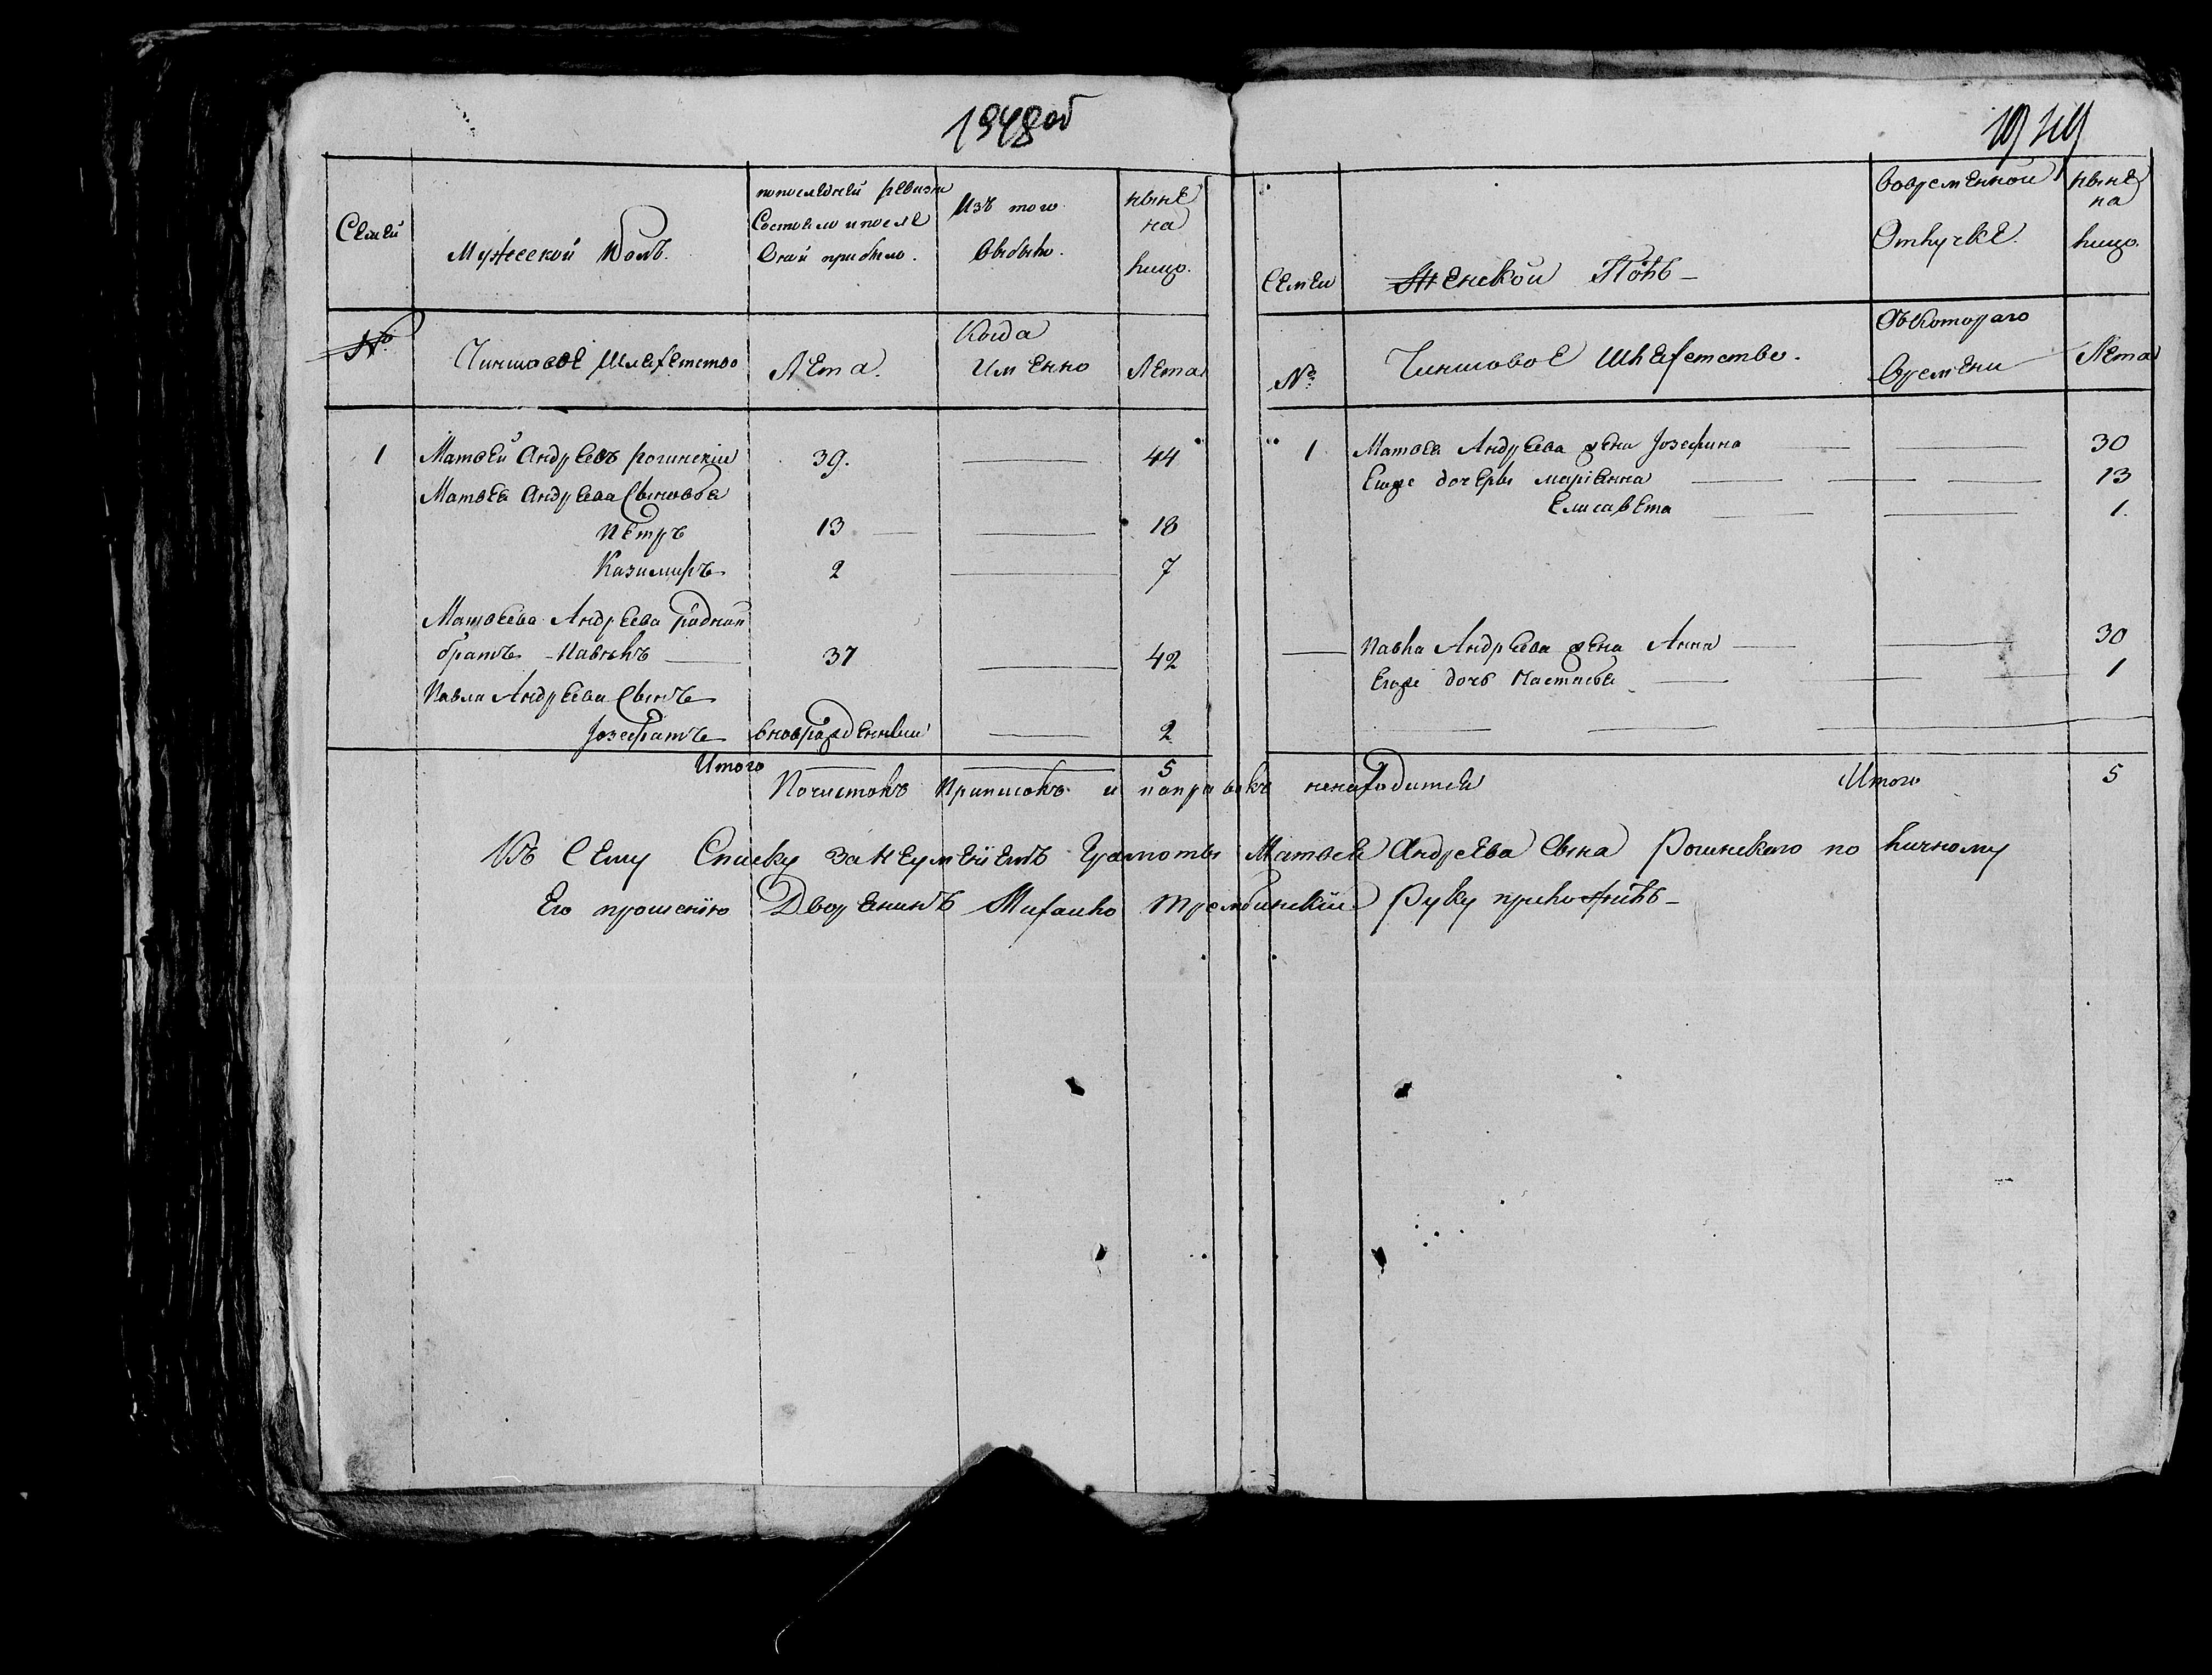 1948об
Семьи
Мужеской полъ.
попоследней ревизіи
Состояло и после
Оной прибыло.
Изъ того
выбыло.
ныне
на
лицо.
№
Чиншовое Шляхетство
Лета.
Когда
Именно
Лета
1 Матвей Андреевъ Рогинскій 39. 44
Матвея Андреева Сыновья
Петръ 13 18
Казимиръ 2 7
Матвеева Андреева родной
братъ Павелъ 37 42
Павла Андреева Сынъ
Јозефатъ вновьрожденный 2
Итого 5
1949
Семьи
Женской Полъ
вовременной
Отлучке.
ныне
на
лицо.
№
Чиншовое Шляхетство.
Съкотораго
времени
Лета
1 Матвея Андреева жена Јозефина 30
Егоже дочеры маріанна 13
Елисавета 1.
Павла Андреева жена Анна 30
Егоже дочь Настасья 1
Итого 5
Почистокъ Приписокъ и поправокъ ненаходится
Къ Сему Списку занеуменіемъ Грамоты Матвея Андреева Сына Рогинского по личному
Его прошенію Дворянинъ Михайло Трембинскій Руку приложилъ